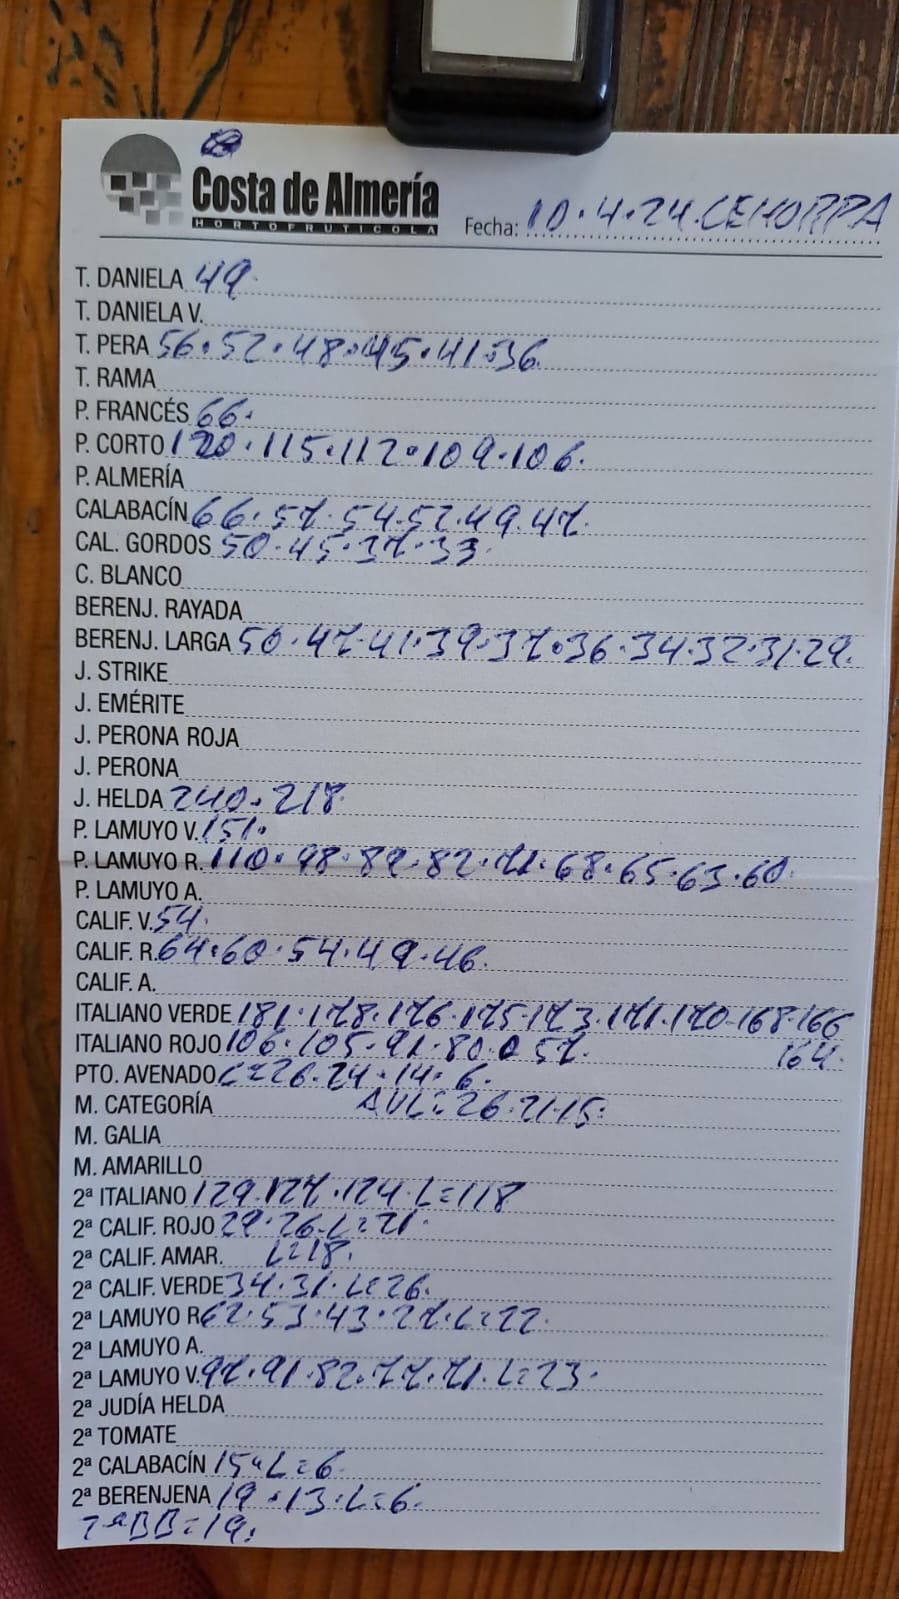 Costa de Almería
HORTOFRUTICOLA
Fecha: 10.4.24.CEHORPA
T. DANIELA 49.
T. DANIELA V.
T. PERA 56.52.48.45.41.36.
T. RAMA
P. FRANCÉS 66.
P. CORTO 120.115.112.109.106.
P. ALMERÍA
CALABACÍN 66.57.54.52.49.47.
CAL. GORDOS 50.45.37.33.
C. BLANCO
BERENJ. RAYADA
BERENJ. LARGA 50.47.41.39.37.36.34.32.31.29.
J. STRIKE
J. EMÉRITE
J. PERONA ROJA
J. PERONA
J. HELDA 240.218.
P. LAMUYO V. 151.
P. LAMUYO R. 110.98.89.82.71.68.65.63.60.
P. LAMUYO A.
CALIF. V. 54.
CALIF. R. 64.60.54.49.46.
CALIF. A.
ITALIANO VERDE 181.178.176.175.173.171.170.168.166
ITALIANO ROJO 106.105.91.80. 57. 164.
PTO. AVENADO C=26.24.14.6.
M. CATEGORÍA AVL=26.21.15.
M. GALIA
M. AMARILLO
2ª ITALIANO 129.127.124.L=118
2ª CALIF. ROJO 29.26.L=21.
2ª CALIF. AMAR. L=18.
2ª CALIF. VERDE 34.31.L=26.
2ª LAMUYO R 62.53.43.27.L=22.
2ª LAMUYO A.
2ª LAMUYO V. 97.91.82.77.71.L=23.
2ª JUDÍA HELDA
2ª TOMATE
2ª CALABACÍN 15.L=6.
2ª BERENJENA 19.13.L=6.
2ªBB=19.